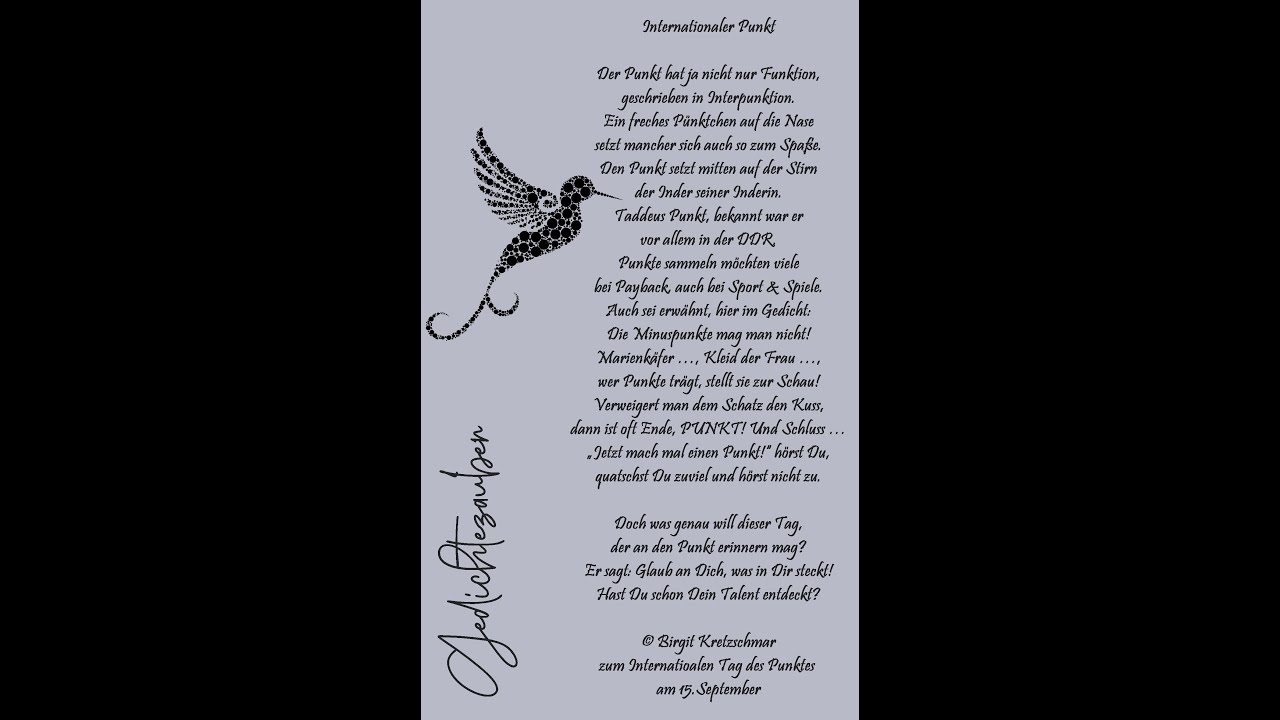 Internationaler Punkt
Der Punkt hat ja nicht nur Funktion,
geschrieben in Interpunktion.
Ein freches Pünktchen auf die Nase
setzt mancher sich auch so zum Spaße.
Den Punkt setzt mitten auf der Stirn
der Inder seiner Inderin.
Taddeus Punkt, bekannt war er
vor allem in der DDR.
Punkte sammeln möchten viele
bei Payback, auch bei Sport & Spiele.
Auch sei erwähnt, hier im Gedicht:
Die Minuspunkte mag man nicht!
Marienkäfer …, Kleid der Frau …,
wer Punkte trägt, stellt sie zur Schau!
Verweigert man dem Schatz den Kuss,
dann ist oft Ende, PUNKT! Und Schluss …
„Jetzt mach mal einen Punkt!“ hörst Du,
quatschst Du zuviel und hörst nicht zu.
Doch was genau will dieser Tag,
der an den Punkt erinnern mag?
Er sagt: Glaub an Dich, was in Dir steckt!
Hast Du schon Dein Talent entdeckt?
© Birgit Kretzschmar
zum Internatioalen Tag des Punktes
am 15.September
Gedichtezauber